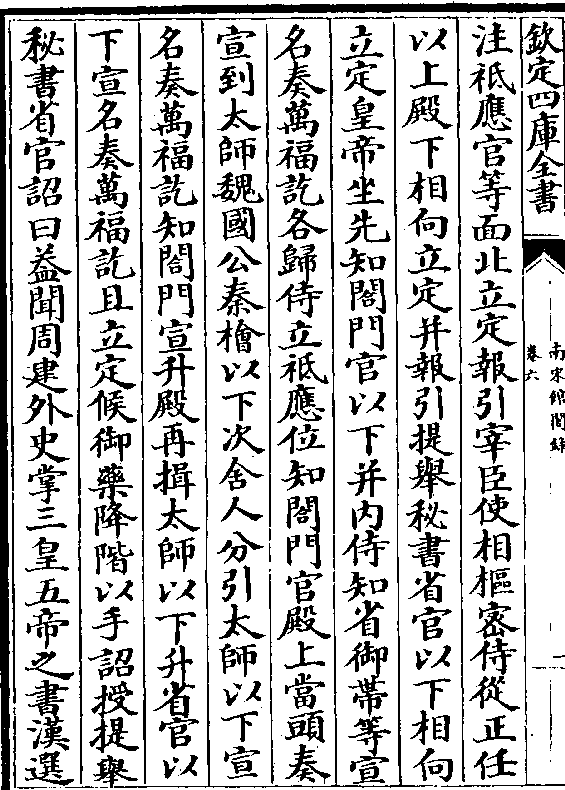 欽定四庫全書
南宋館閣錄
卷六
一
注祗應官等面北立定報引宰臣使相樞密侍從正任
以上殿下相向立定并報引提舉秘書省官以下相向
立定皇帝坐先知閤門官以下并内侍知省御帶等宣
名奏萬福訖各歸侍立祗應位知閤門官殿上當頭奏
宣到太師魏國公秦檜以下次舍人分引太師以下宣
名奏萬福訖知閤門宣升殿再揖太師以下升省官以
下宣名奏萬福訖且立定候御藥降階以手詔授提舉
秘書省官詔曰葢聞周建外史掌三皇五帝之書漢選